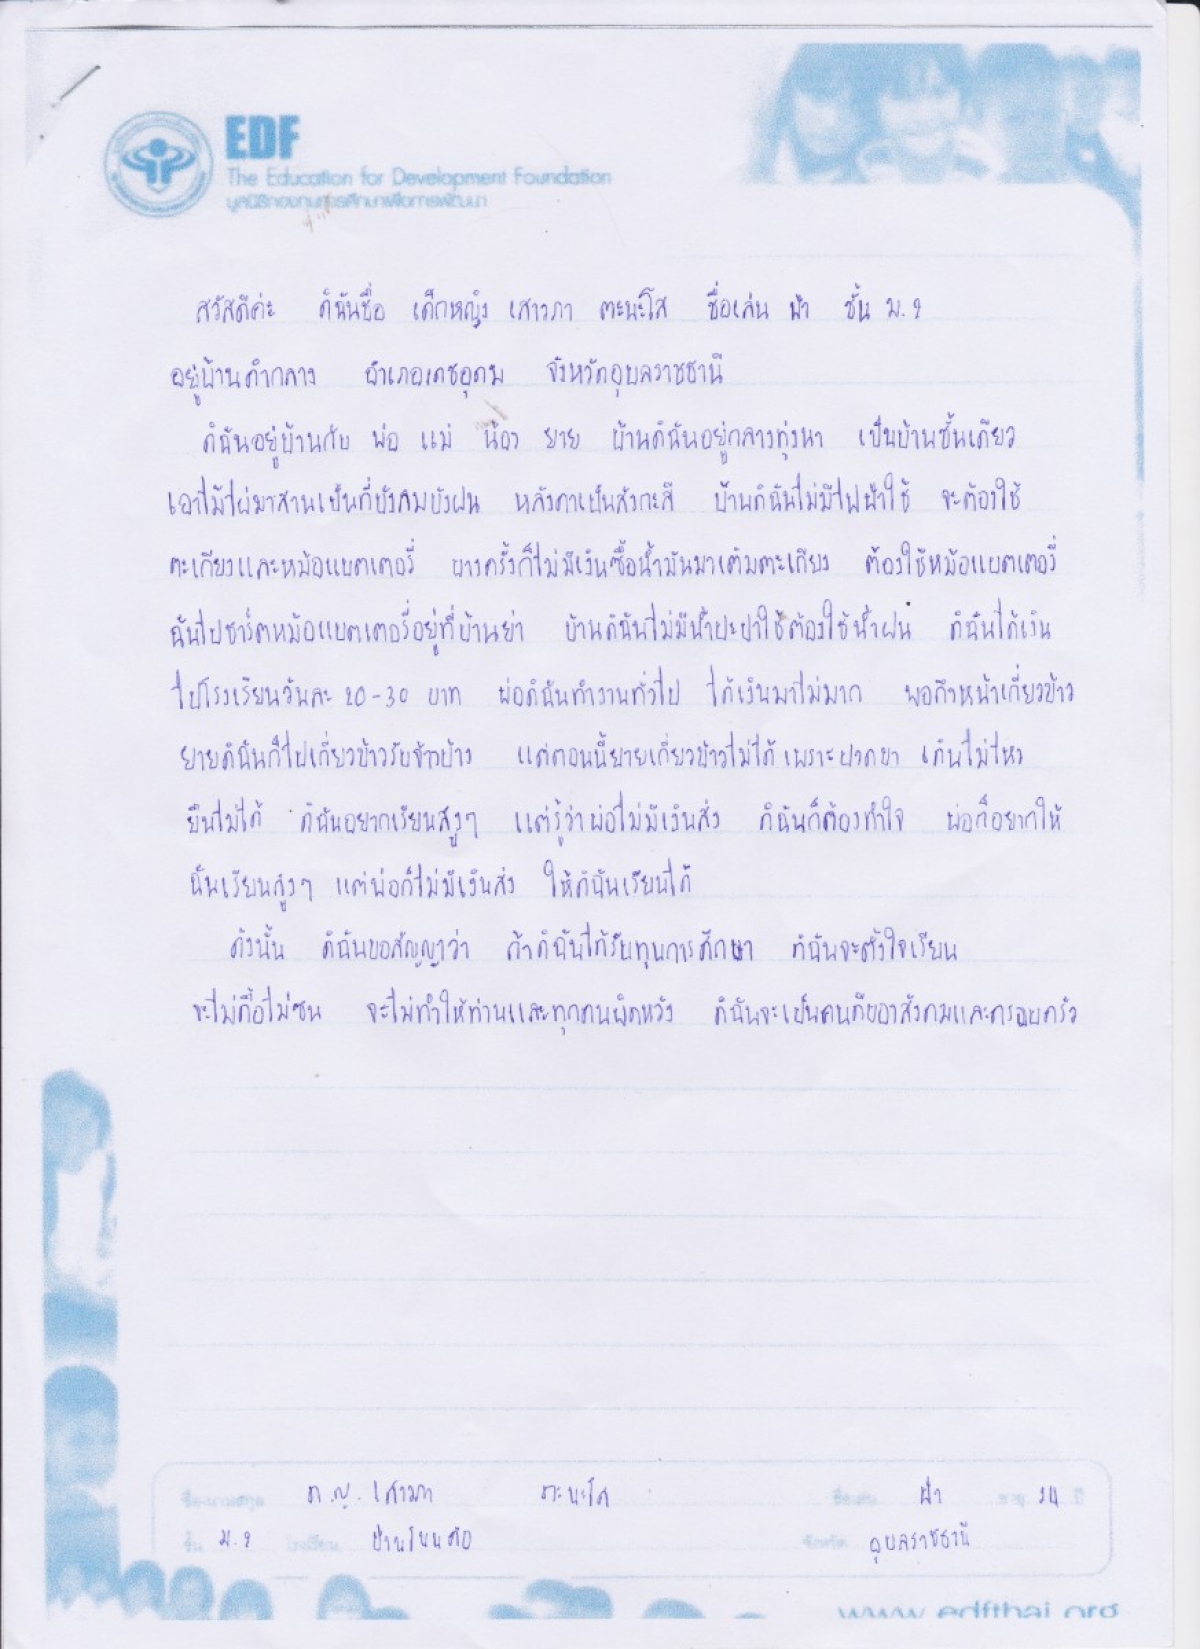 EDF
The Education for Development Foundation
มูลนิธิกองทุนการศึกษาเพื่อการพัฒนา
สวัสดีค่ะ ดิฉันชื่อ เด็กหญิง เสาวภา ตะนะโส ชื่อเล่น ฟ้า ชั้น ม.1
อยู่บ้านคำกลาง อำเภอเดชอุดม จังหวัดอุบลราชธานี
ดิฉันอยู่บ้านกับ พ่อ แม่ น้อง ยาย บ้านดิฉันอยู่กลางทุ่งนา เป็นบ้านชั้นเดียว
เอาไม้ไผ่มาสานเป็นที่บังลมบังฝน หลังคาเป็นสังกะสี บ้านดิฉันไม่มีไฟฟ้าใช้ จะต้องใช้
ตะเกียงและหม้อแบตเตอรี่ บางครั้งก็ไม่มีเงินซื้อน้ำมันมาเติมตะเกียง ต้องใช้หม้อแบตเตอรี่
ฉันไปชาร์ตหม้อแบตเตอรี่อยู่ที่บ้านย่า บ้านดิฉันไม่มีน้ำปะปาใช้ต้องใช้น้ำฝน ดิฉันได้เงิน
ไปโรงเรียนวันละ 20-30 บาท พ่อดิฉันทำงานทั่วไป ได้เงินมาไม่มาก พอถึงหน้าเกี่ยวข้าว
ยายดิฉันก็ไปเกี่ยวข้าวรับจ้าวบ้าง แต่ตอนนี้ยายเกี่ยวข้าวไม่ได้เพราะปวดขา เดินไม่ไหว
ยืนไม่ได้ ดิฉันอยากเรียนสูงๆ แต่รู้ว่าพ่อไม่มีเงินส่ง ดิฉันก็ต้องทำใจ พ่อก็อยากให้
ฉันเรียนสูงๆ แต่พ่อก็ไม่มีเงินส่ง ให้ดิฉันเรียนได้
ดังนั้น ดิฉันขอสัญญาว่า ถ้าดิฉันได้รับทุนการศึกษา ดิฉันจะตั้งใจเรียน
จะไม่ดื้อไม่ซน จะไม่ทำให้ท่านและทุกคนผิดหวัง ดิฉันจะเป็นคนดีของสังคมและครอบครัว
ชื่อ-นามสกุล ด.ญ.เสาวภา ตะนะโส ชื่อเล่น ฟ้า อายุ 14 ปี
ชั้น ม.1 โรงเรียน บ้านโนนค้อ จังหวัด อุบลราชธานี
www.edfthai.org